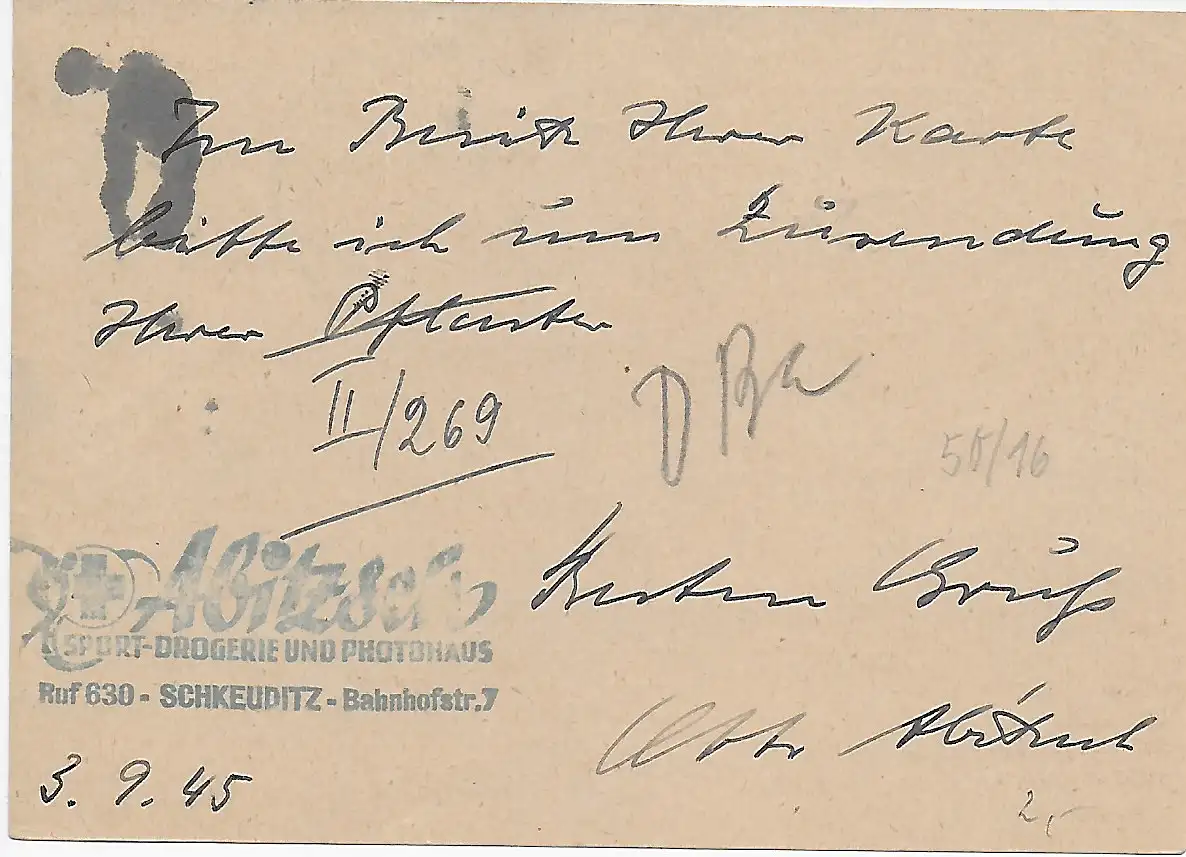 Im Besitz Ihrer Karte
bitte ich um Zusendung
Ihrer
II/269
50/16
Abitzsch
SPORT-DROGERIE UND PHOTOHAUS
Ruf 630 - SCHKEUDITZ - Bahnhofstr. 7
Besten Gruß
Otto Abitzsch
3. 9. 45
2,-